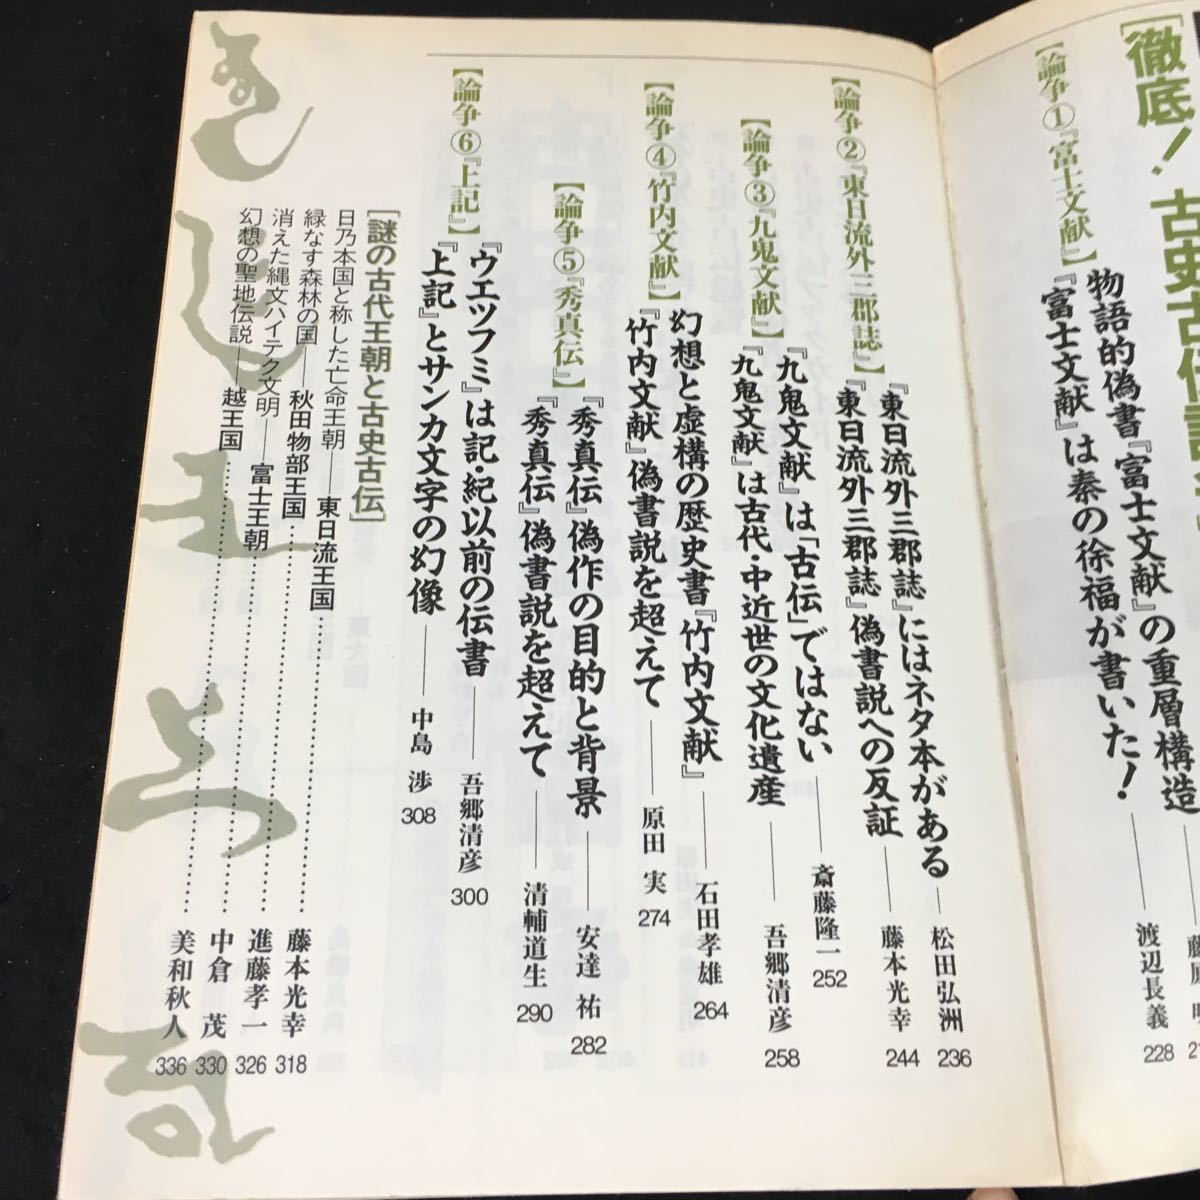 【徹底！古史古伝論争
【論争①『富士文献』】
物語的偽書『富士文献』の重層構造
『富士文献』は秦の徐福が書いた！――渡辺長義 228
【論争②『東日流外三郡誌』】
『東日流外三郡誌』にはネタ本がある――松田弘洲 236
『東日流外三郡誌』偽書説への反証――藤本光幸 244
【論争③『九鬼文献』】
『九鬼文献』は「古伝」ではない――斎藤隆一 252
『九鬼文献』は古代・中近世の文化遺産――吾郷清彦 258
【論争④『竹内文献』】
幻想と虚構の歴史書『竹内文献』――石田孝雄 264
『竹内文献』偽書説を超えて――原田 実 274
【論争⑤『秀真伝』】
『秀真伝』偽作の目的と背景――安達 祐 282
『秀真伝』偽書説を超えて――清輔道生 290
【論争⑥『上記』】
『ウエツフミ』は記・紀以前の伝書――吾郷清彦 300
『上記』とサンカ文字の幻像――中島 渉 308
[謎の古代王朝と古史古伝]
日乃本国と称した亡命王朝――東日流王国…………藤本光幸 318
緑なす森林の国――秋田物部王国…………進藤孝一 326
消えた縄文ハイテク文明――富士王朝…………中倉 茂 330
幻想の聖地伝説――越王国…………美和秋人 336